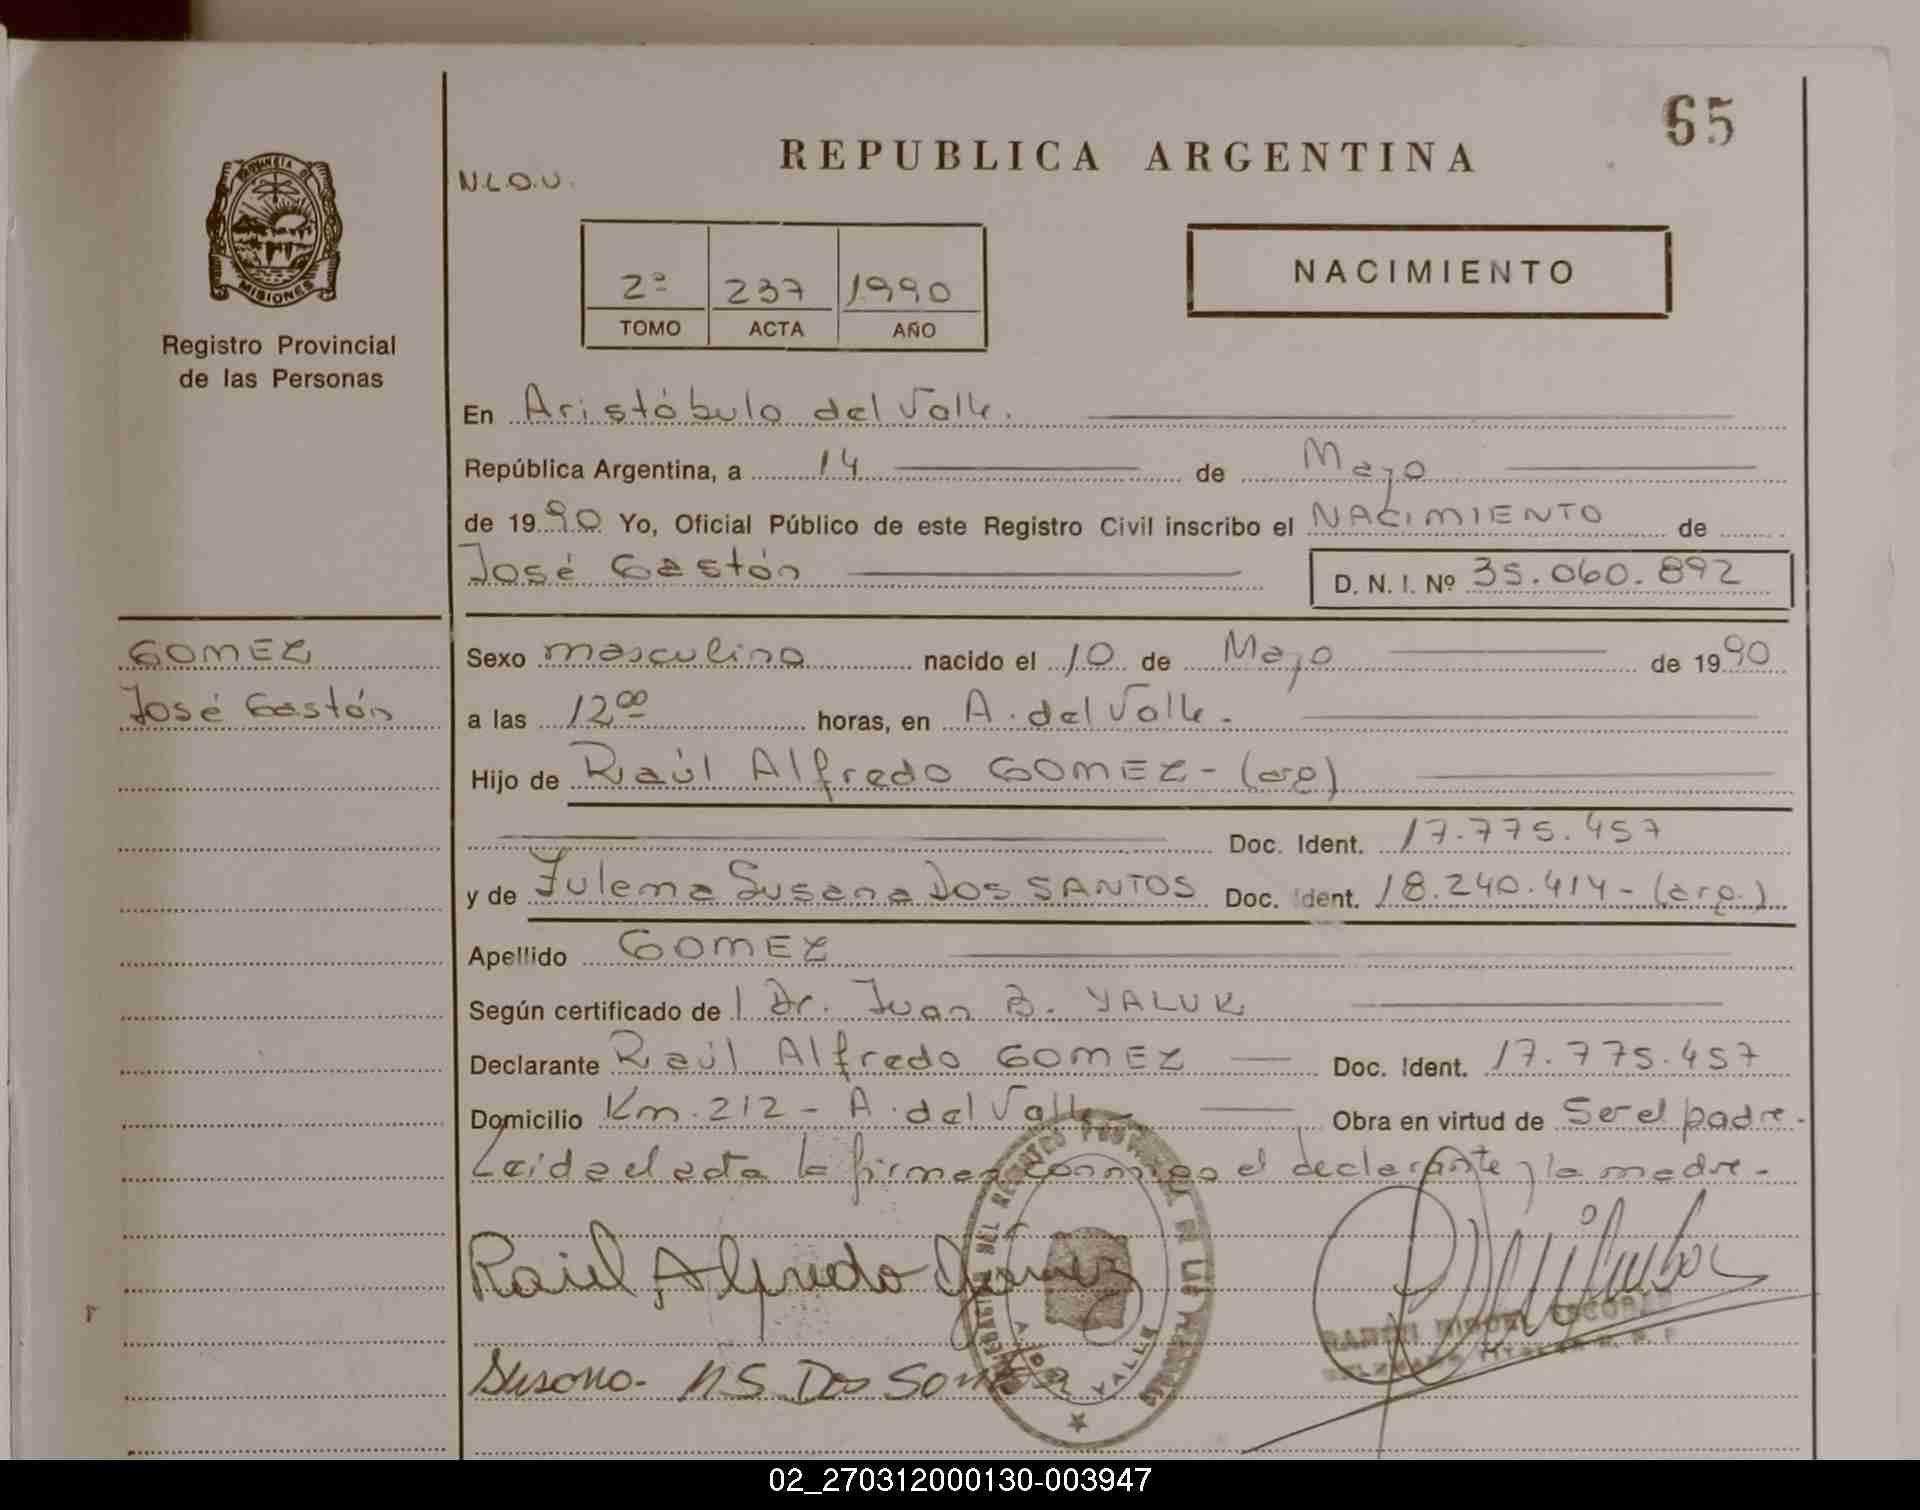 65
REPUBLICA ARGENTINA
N.L.O.U.
PROVINCIA DE
MISIONES
Registro Provincial
de las Personas
2º 237 1990
TOMO ACTA AÑO
NACIMIENTO
En Aristóbulo del Valle.
República Argentina, a 14 de Mayo
de 1990 Yo, Oficial Público de este Registro Civil inscribo el NACIMIENTO de
José Gastón D. N. I. Nº 35.060.892
GOMEZ
José Gastón
Sexo masculino nacido el 10 de Mayo de 1990
a las 12⁰⁰ horas, en A. del Valle.
Hijo de Raúl Alfredo GOMEZ - (arg)
Doc. Ident. 17.775.457
y de Zulema Susana DOS SANTOS Doc. Ident. 18.240.414 - (arg.)
Apellido GOMEZ
Según certificado de l Dr. Juan B. YALUK
Declarante Raúl Alfredo GOMEZ Doc. Ident. 17.775.457
Domicilio Km. 212 - A. del Valle - Obra en virtud de Ser el padre.
Leida el acta la firman conmigo el declarante y la madre.
Raúl Alfredo Gomez
DEL REGISTRO PROVINCIAL DE LAS PERSONAS
A. DEL VALLE
Dos Santos
RAMON ESCOBAR
02_270312000130-003947